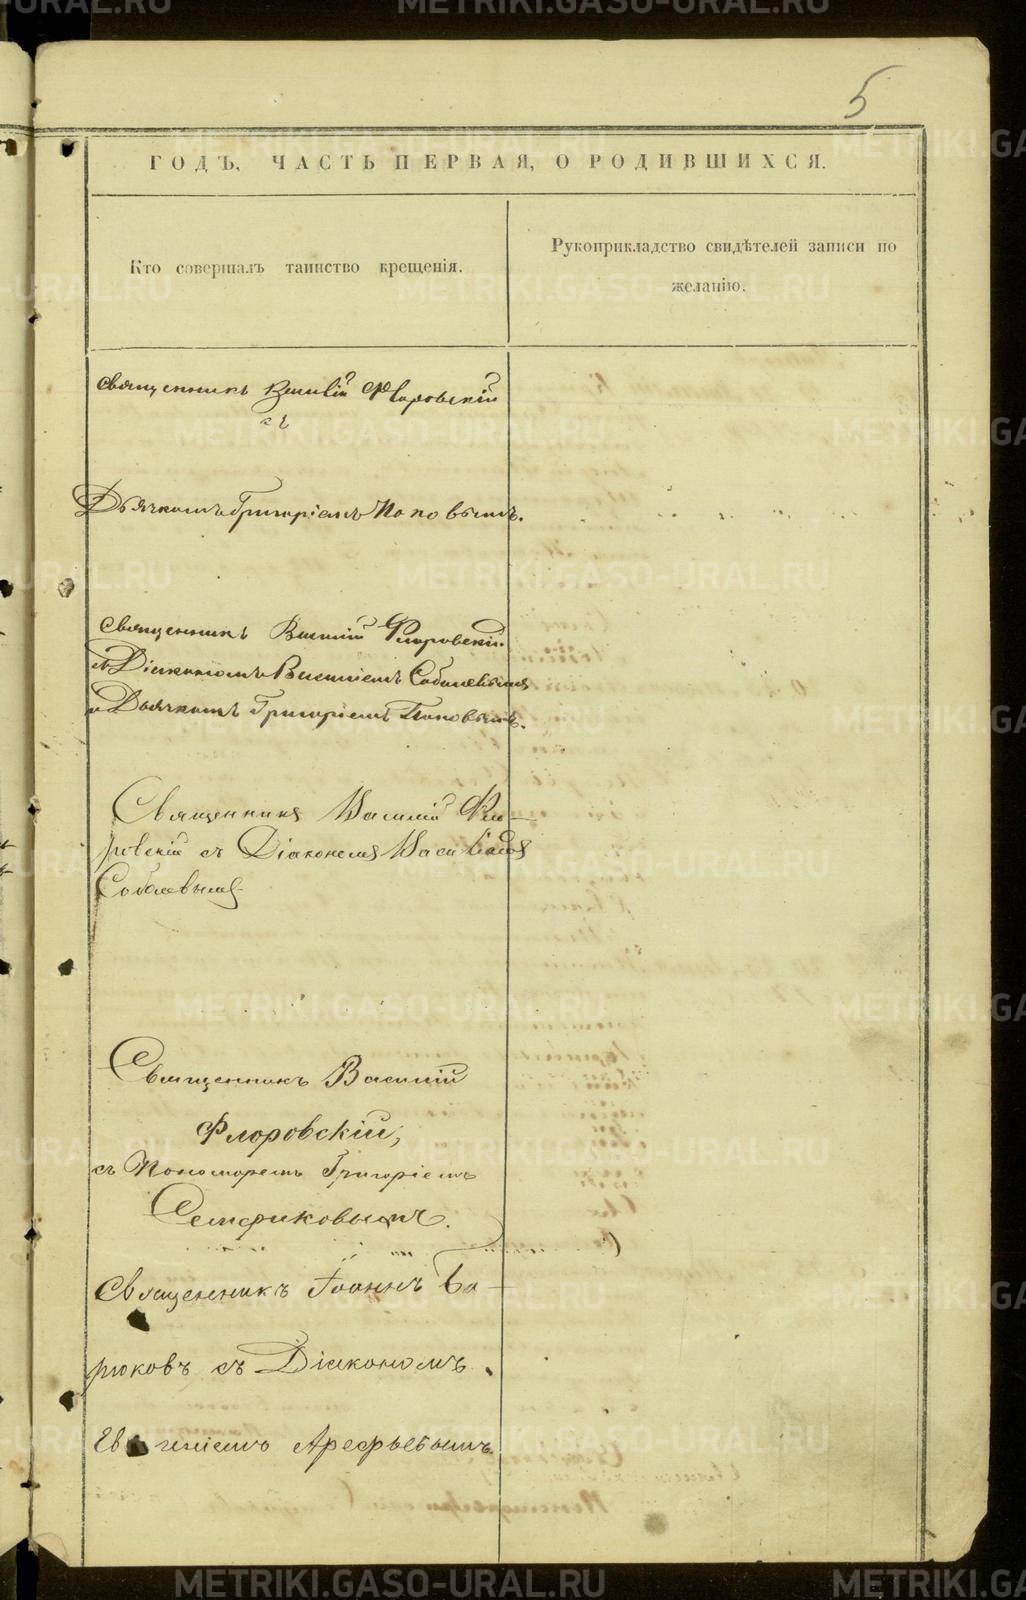 5
ГОДЪ, ЧАСТЬ ПЕРВАЯ, О РОДИВШИХСЯ.
Кто совершалъ таинство крещенія.
Рукоприкладство свидѣтелей записи по
желанію.
Священникъ Василій Флоровскій
съ
Дьячкомъ Григоріемъ Поповымъ.
Священникъ Василій Флоровскій
съ Діакономъ Василіемъ Соболевымъ
и Дьячкомъ Григоріемъ Поповымъ.
Священникъ Василій Фло-
ровскій съ Діакономъ Василіемъ
Соболевымъ
Священникъ Василій
Флоровскій,
съ Пономоремъ Григоріемъ
Семериковымъ.
Священникъ Іоаннъ Би-
рюковъ съ Діакономъ
Евгеніемъ Арефьевымъ.
METRIKI.GASO-URAL.RU